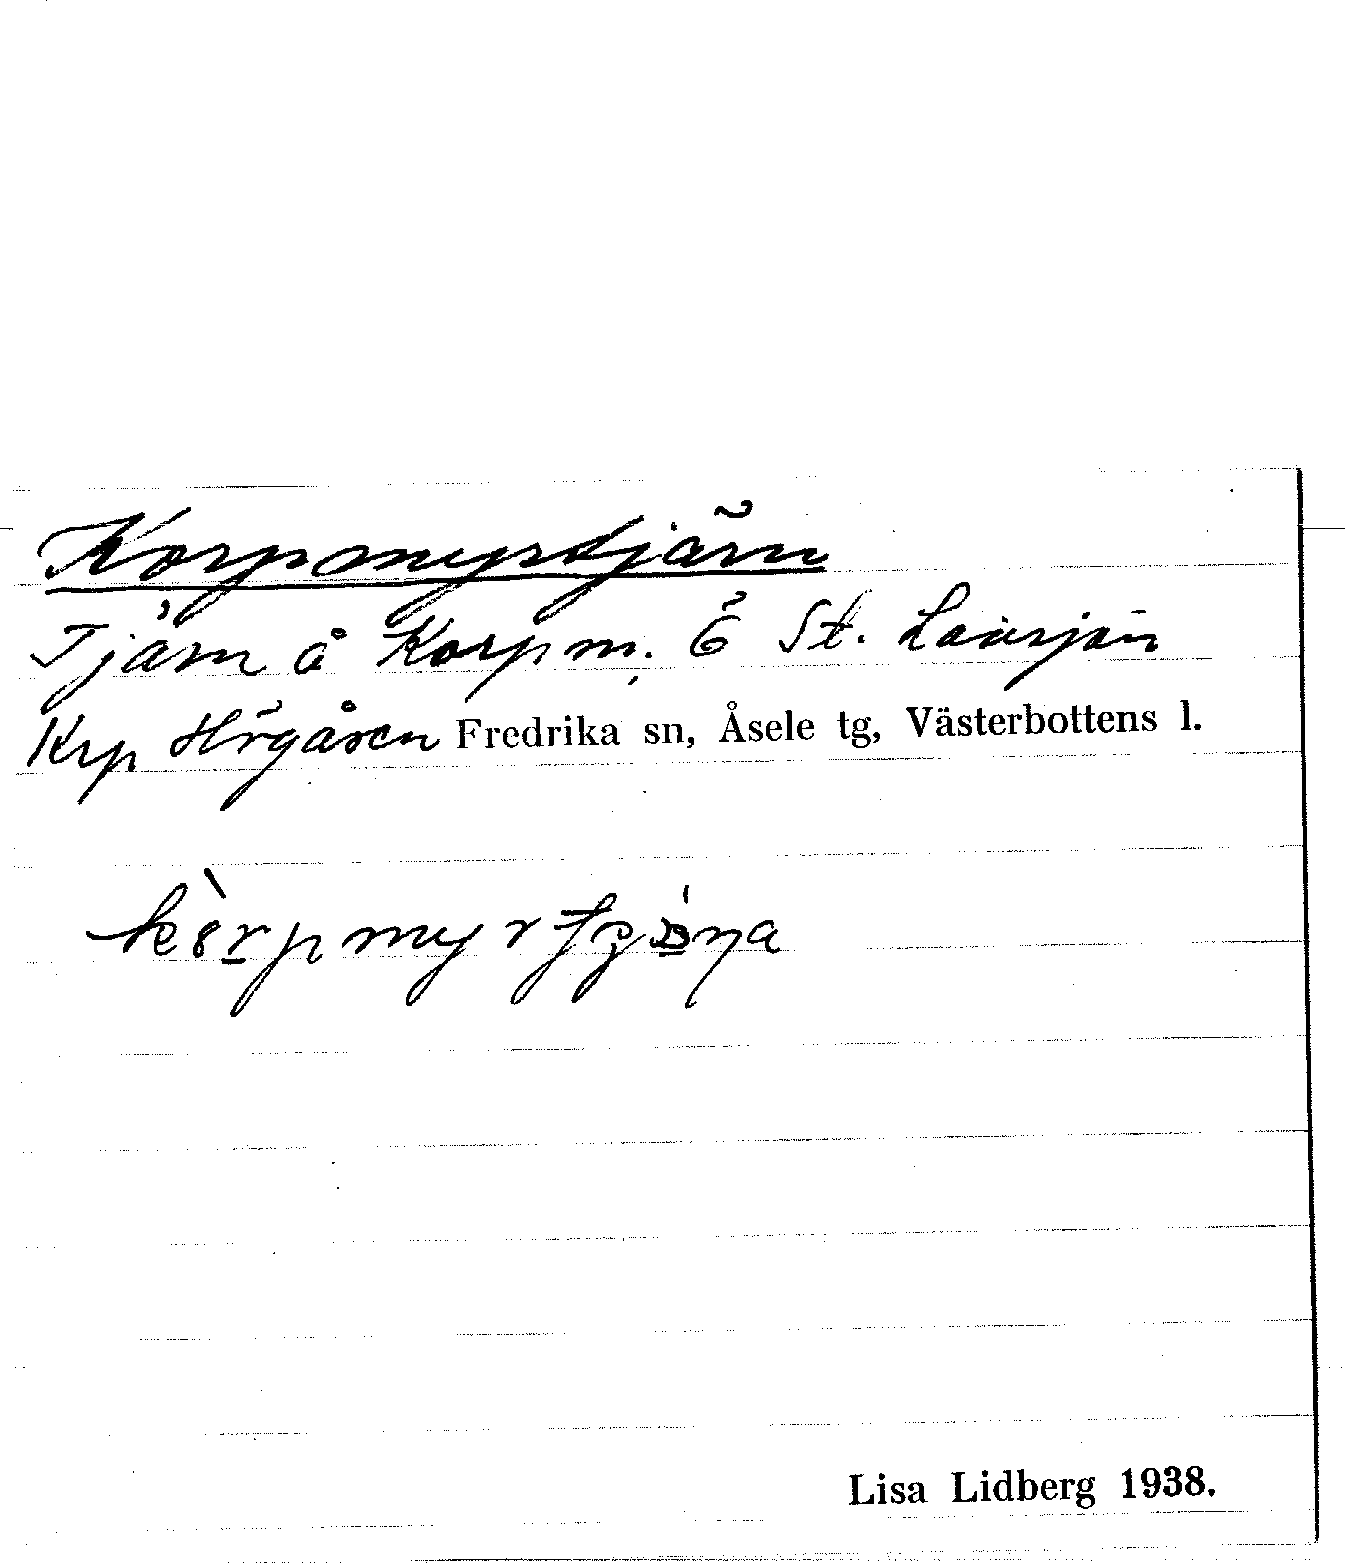 Korpmyrtjärn
Tjärn å Korpm. Ö St. Lävsjön
Krp Högåsen Fredrika sn, Åsele tg, Västerbottens l.
Lisa Lidberg 1938.